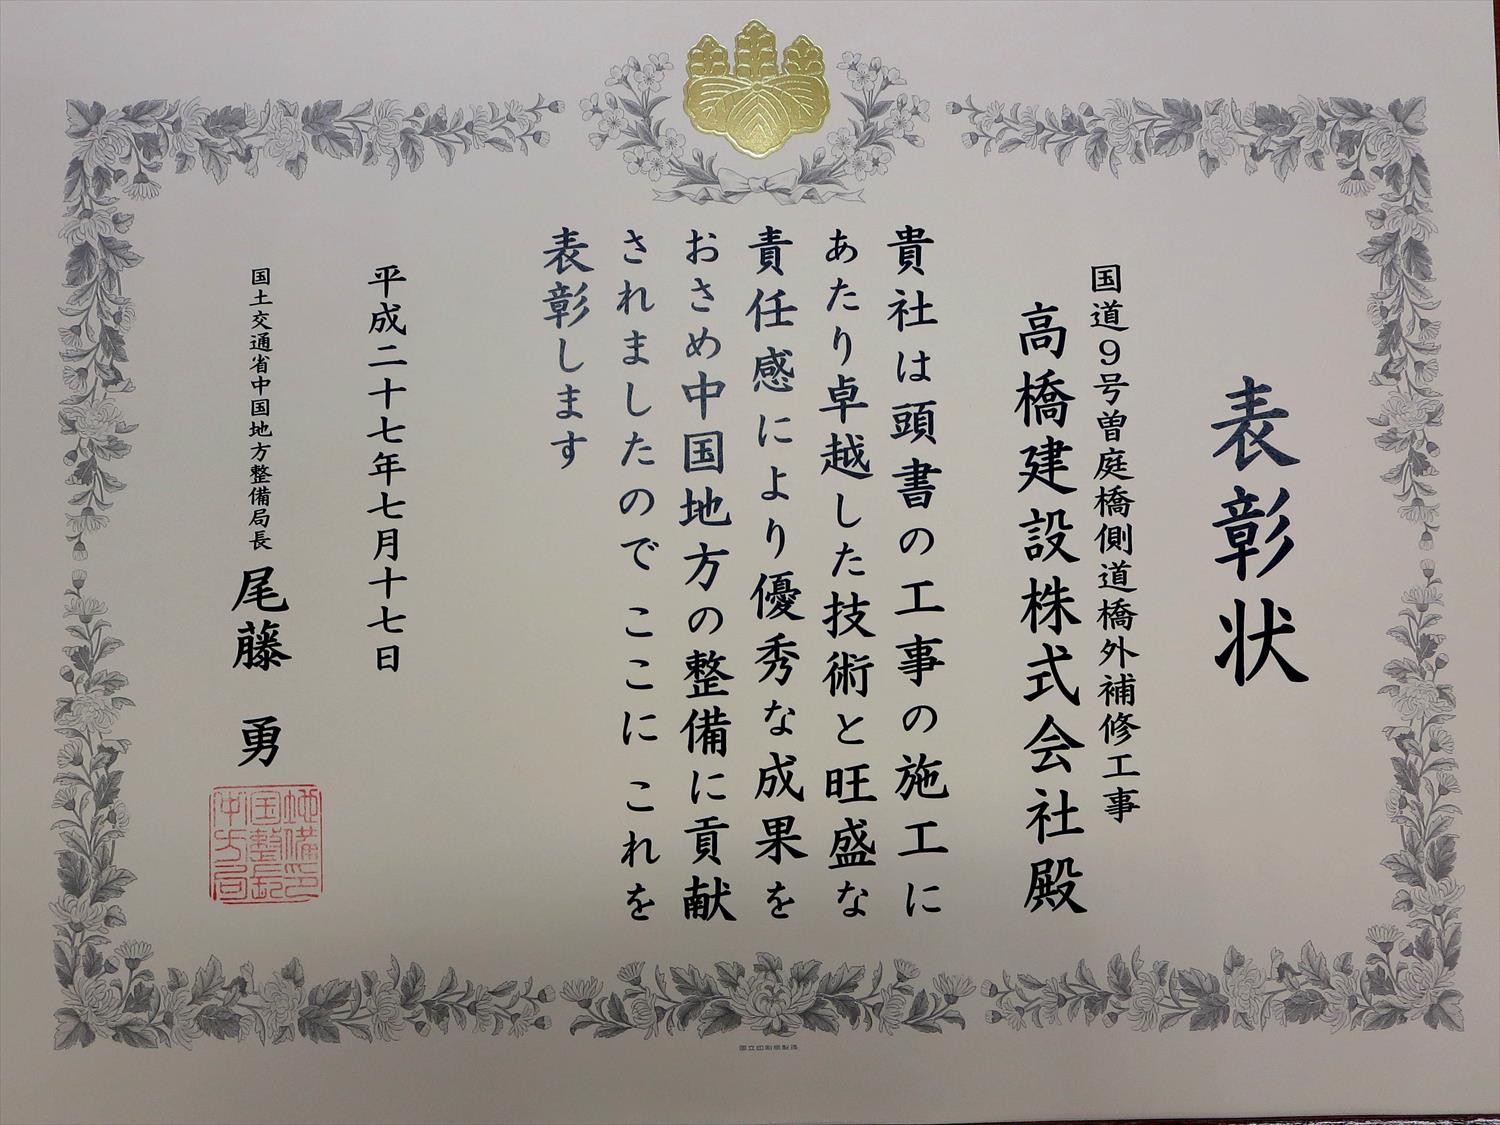 表彰状
国道9号曽庭橋側道橋外補修工事
高橋建設株式会社殿
貴社は頭書の工事の施工に
あたり卓越した技術と旺盛な
責任感により優秀な成果を
おさめ中国地方の整備に貢献
されましたのでここにこれを
表彰します
平成二十七年七月十七日
国土交通省中国地方整備局長 尾藤 勇
国立印刷局製造